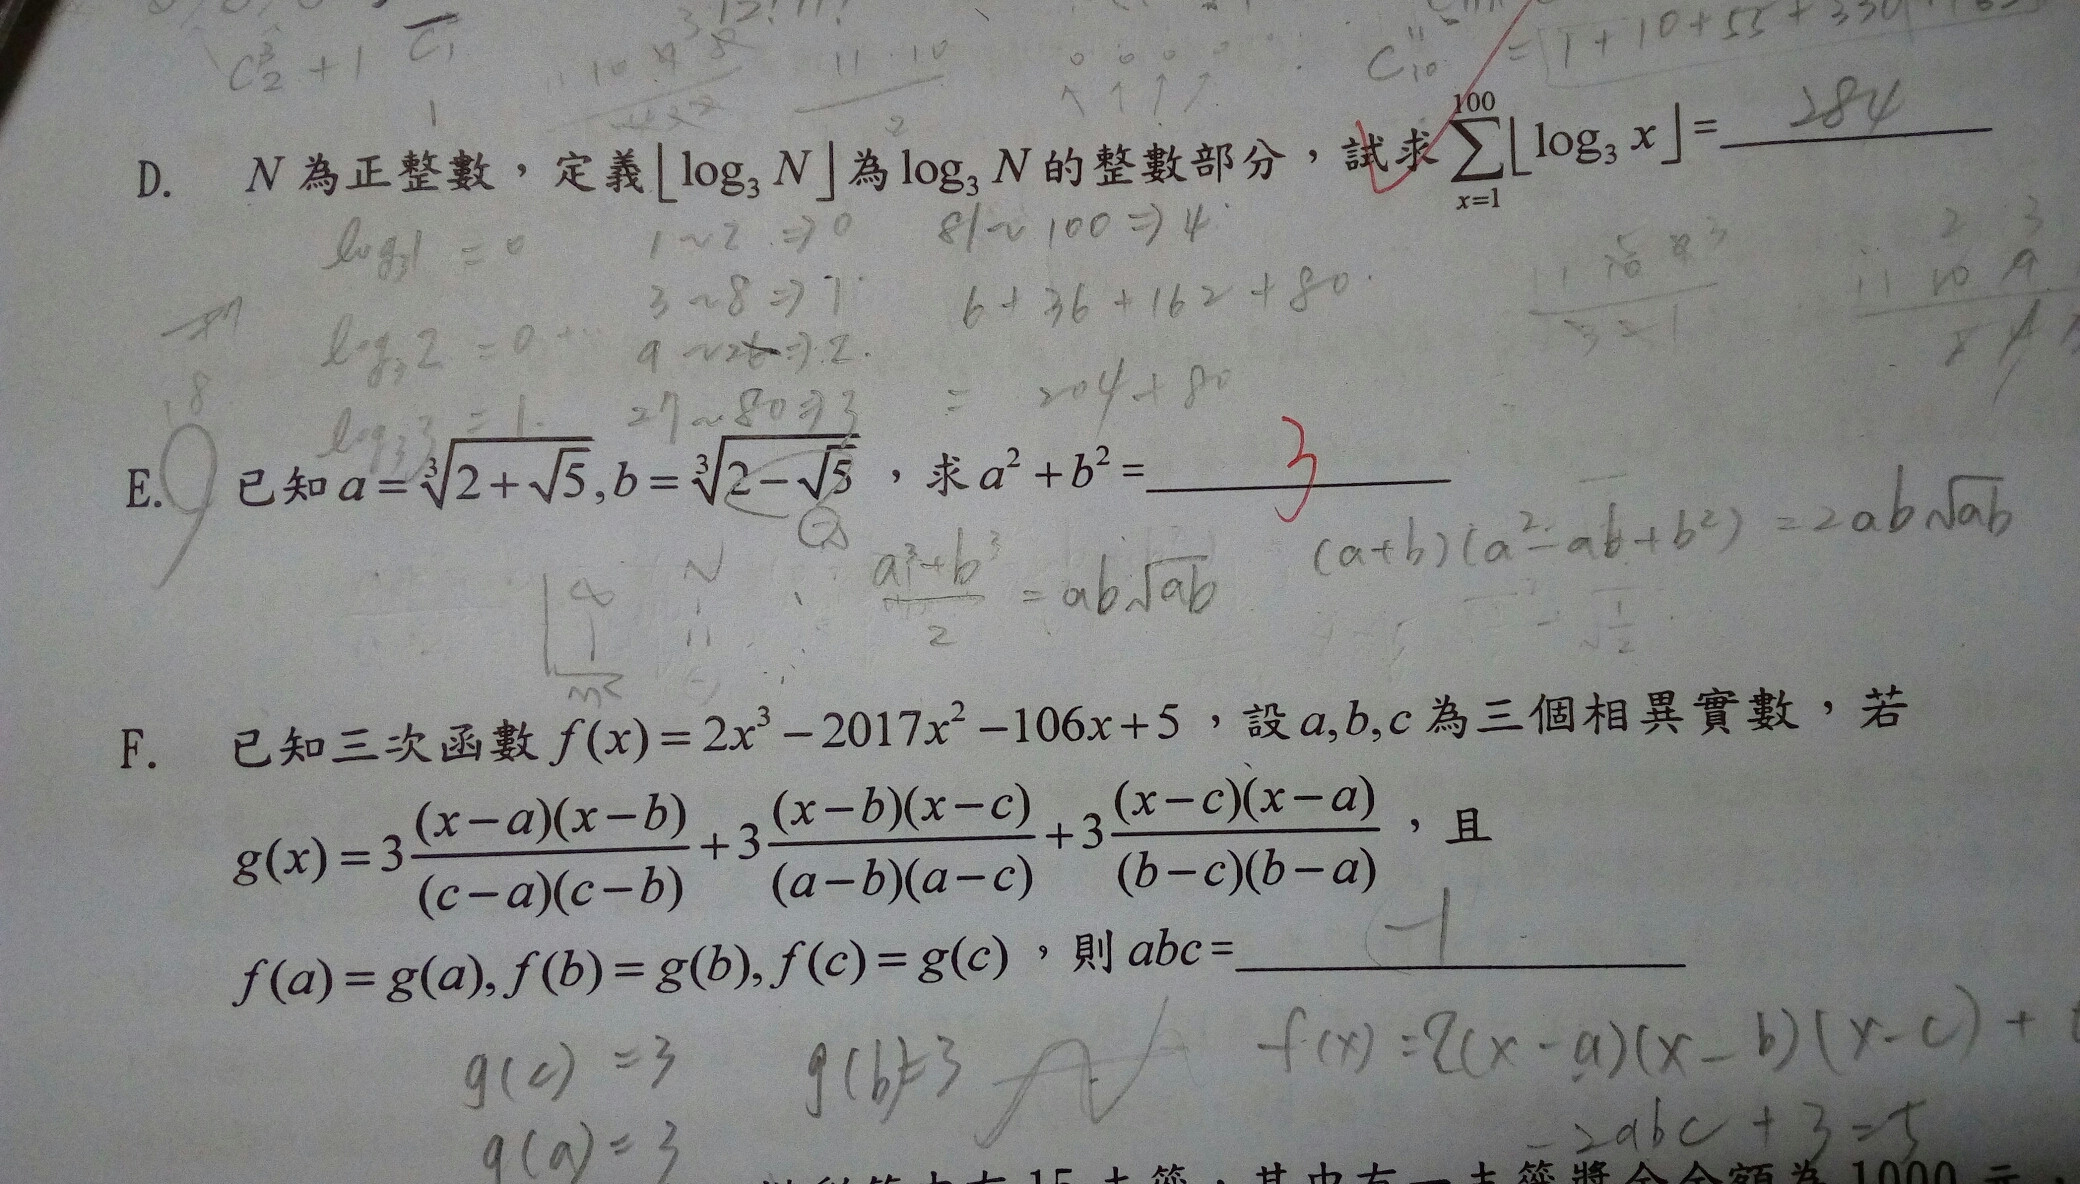 12! 11!
C₂³ + 1
C₁₀¹¹ = 1 + 10 + 55 + 330
11 10 9 8 3
11 10
2
D. N 為正整數，定義⌊log₃ N⌋為 log₃ N 的整數部分，試求 \sum_{x=1}^{100} ⌊log₃ x⌋ = 284
log₃1 = 0 1~2 ⇒ 0 81~100 ⇒ 4
3~8 ⇒ 1 6 + 36 + 162 + 80
log₃2 = 0 9~26 ⇒ 2
log₃3 = 1 27~80 ⇒ 3 = 204 + 80
E. 已知 a = ∛(2+√5), b = ∛(2−√5)，求 a² + b² = 3
(a³+b³)/2 = ab√ab (a+b)(a²−ab+b²) = 2ab√ab
F. 已知三次函數 f(x) = 2x³ − 2017x² − 106x + 5，設 a,b,c 為三個相異實數，若
g(x) = 3 (x−a)(x−b)/(c−a)(c−b) + 3 (x−b)(x−c)/(a−b)(a−c) + 3 (x−c)(x−a)/(b−c)(b−a)，且
f(a) = g(a), f(b) = g(b), f(c) = g(c)，則 abc = −1
g(c) = 3 g(b) = 3 f(x) = 2(x−a)(x−b)(x−c) +
g(a) = 3 −2abc + 3 = 5